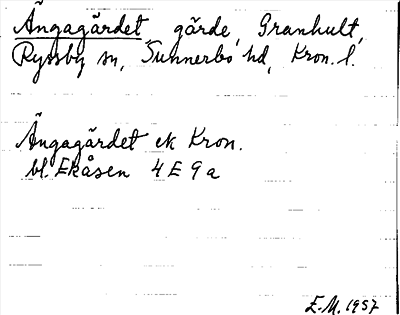 Ängagärdet gärde, Granhult,
Ryssby sn, Sunnerbo hd, Kron. l.
Ängagärdet ek Kron.
bl. Ekåsen 4E9a
E.M. 1957